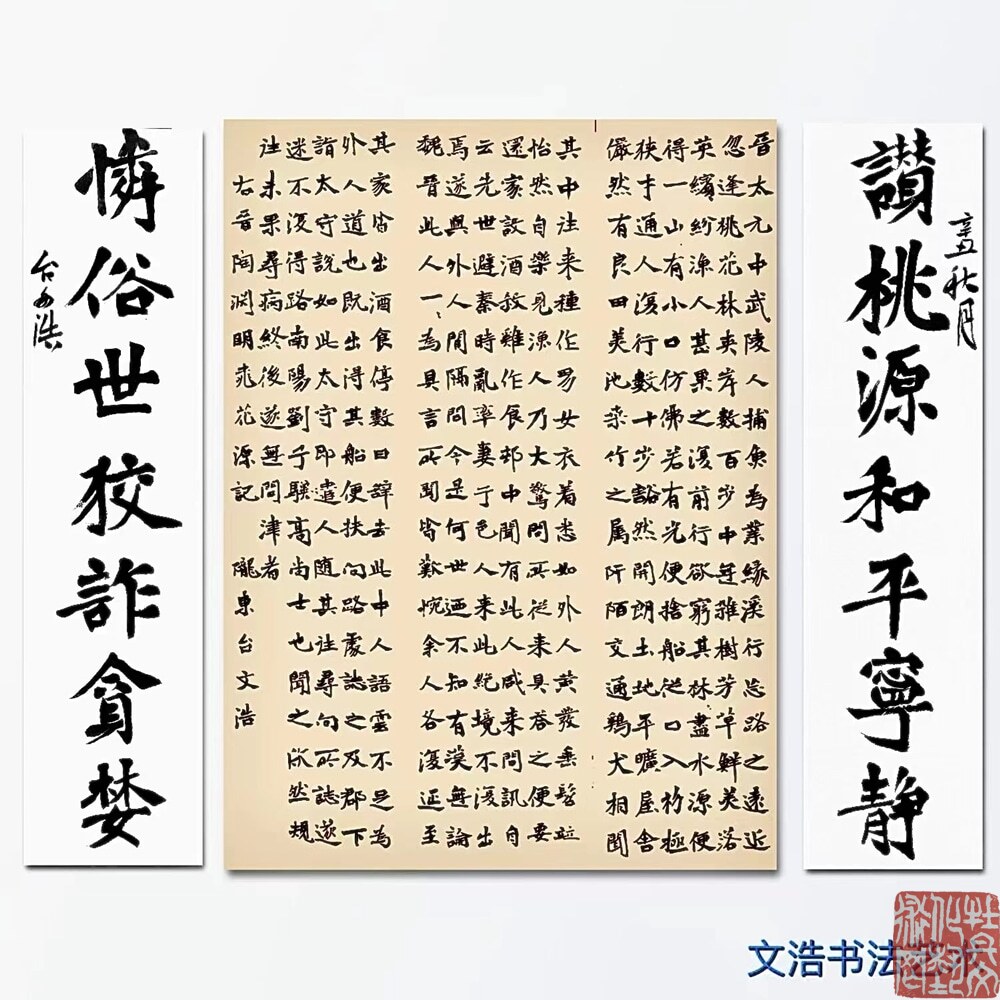 讚桃源和平寧靜
辛丑秋月
晉太元中武陵人捕魚為業緣溪行忘路之遠近
忽逢桃花林夾岸數百步中無雜樹芳草鮮美落
英繽紛漁人甚異之復前行欲窮其林盡水源便
得一山有小口仿佛若有光便捨船從口入初極
狹才通人復行數十步豁然開朗土地平曠屋舍
儼然有良田美池桑竹之屬阡陌交通鷄犬相聞
其中往來種作男女衣着悉如外人黃髮垂髫並
怡然自樂見漁人乃大驚問所從來具答之便要
還家設酒殺雞作食邨中聞有此人咸來問訊自
云先世避秦時亂率妻子邑人來此絕境不復出
焉遂與外人間隔問今是何世迺不知有漢無論
魏晉此人一、為具言所聞皆歎惋余人各復延至
其家皆出酒食停數日辭去此中人語雲不足為
外人道也既出得其船便扶向路處誌之及郡下
詣太守說如此太守即遣人隨其往尋向所誌遂
迷不復得路南陽劉子驥高尚士也聞之欣然規
往未果尋病終後遂無問津者
右晉陶淵明桃花源記 隴東台文浩
憐俗世狡詐貪婪
台文浩
文浩书法艺术